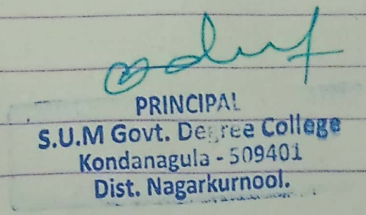 PRINCIPAL
S.U.M Govt. Degree College
Kondanagula - 509401
Dist. Nagarkurnool.